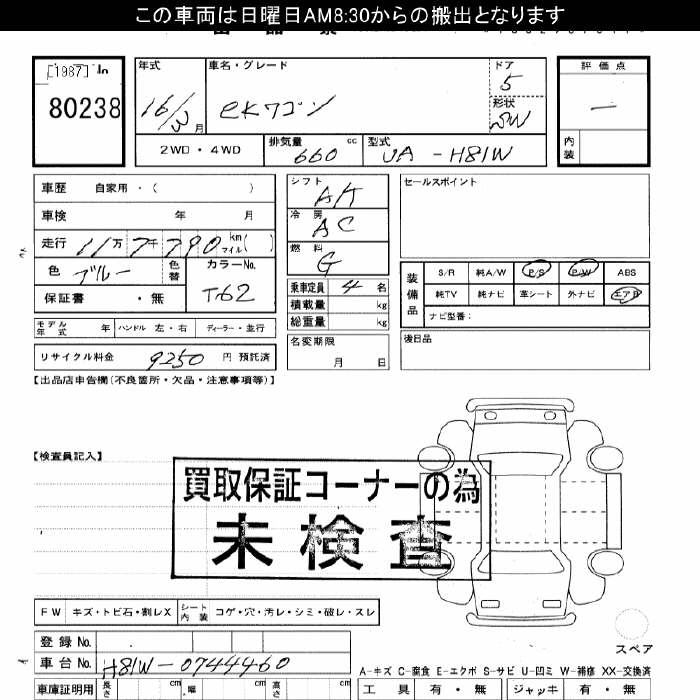 この車両は日曜日AM8:30からの搬出となります
[1987] In
80238
年式
16/3月
車名・グレード
eKワゴン
ドア
5
形状
SW
評価点
—
内装
2WD・4WD
排気量 660 cc
型式 UA-H81W
車歴 自家用・( )
車検 年 月
走行 11万7千790 km マイル( )
色 ブルー
色替
カラーNo. T62
保証書 ・無
モデル年式 年 ハンドル 左・右 ディーラー・並行
リサイクル料金 9250 円 預託済
シフト AT
冷房 AC
燃料 G
乗車定員 4 名
積載量 kg
総重量 kg
名変期限
月 日
セールスポイント
装備品
S/R 純A/W P/S P/W ABS
純TV 純ナビ 革シート 外ナビ エアB
ナビ型番:
後日品
【出品店申告欄(不良箇所・欠品・注意事項等)】
【検査員記入】
買取保証コーナーの為
未検査
FW キズ・トビ石・割レX シート内装 コゲ・穴・汚レ・シミ・破レ・スレ
スペア
登録No.
車台No. H81W-0744460
A-キズ C-腐食 E-エクボ S-サビ U-凹ミ W-補修 XX-交換済
車庫証明用 長さ cm 幅 cm cm
工具 有・無 ジャッキ 有・無